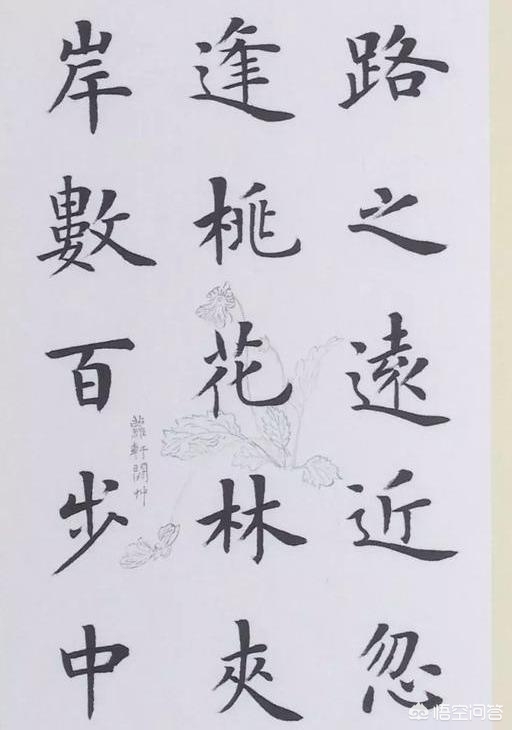 路之遠近忽
逢桃花林夾
岸數百步中
蘿軒閒艸
悟空问答